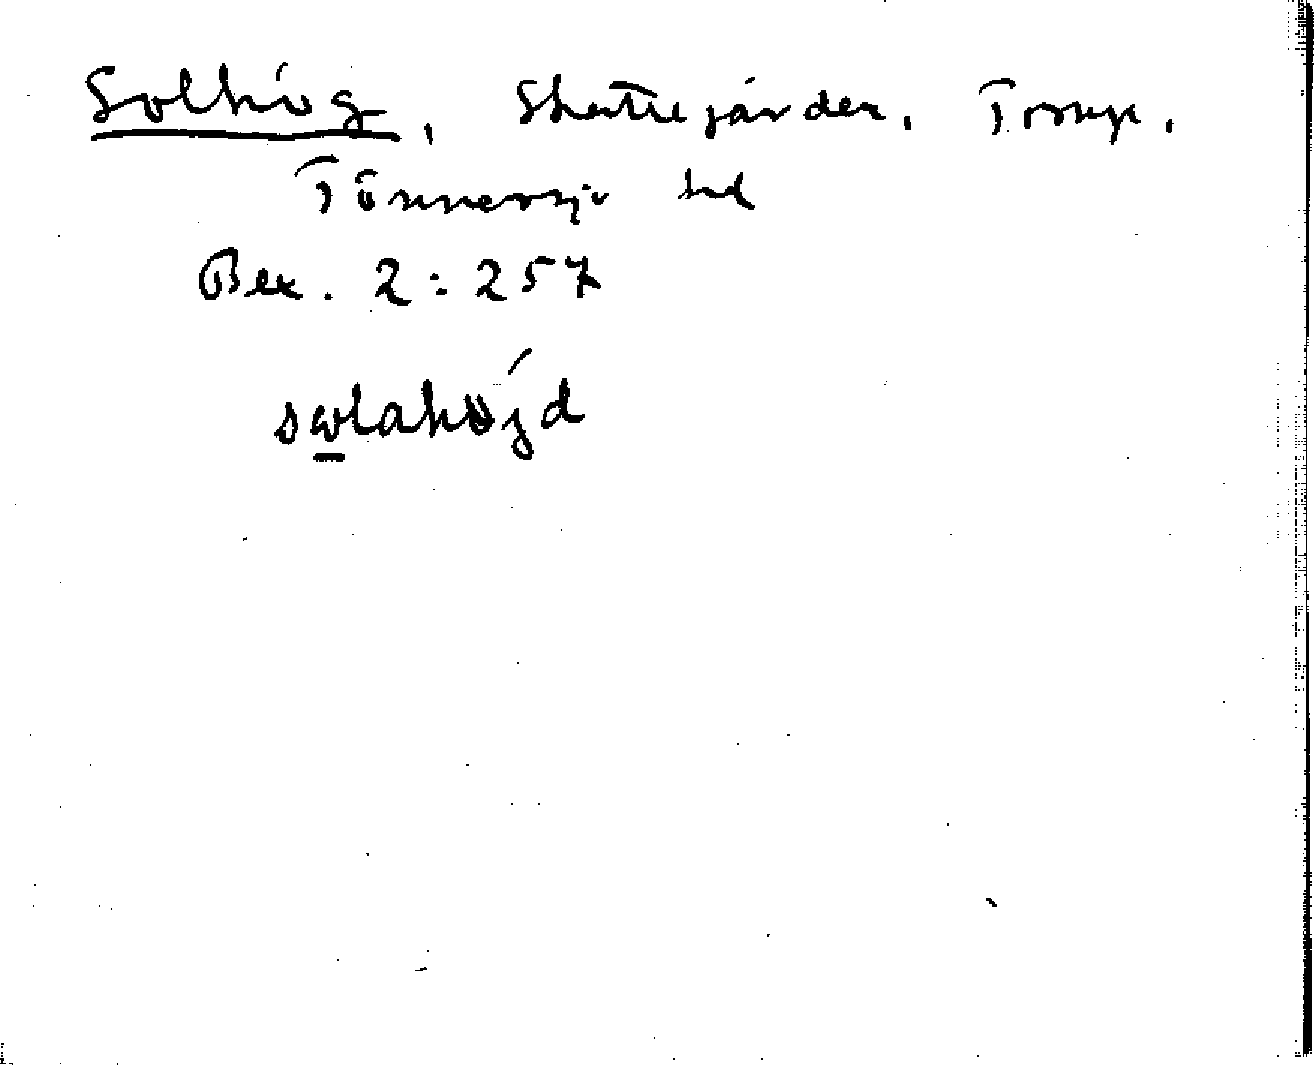 Solhög, Skattegården, Torup,
Tönnersjö hd
Bex. 2:257
solahöjd